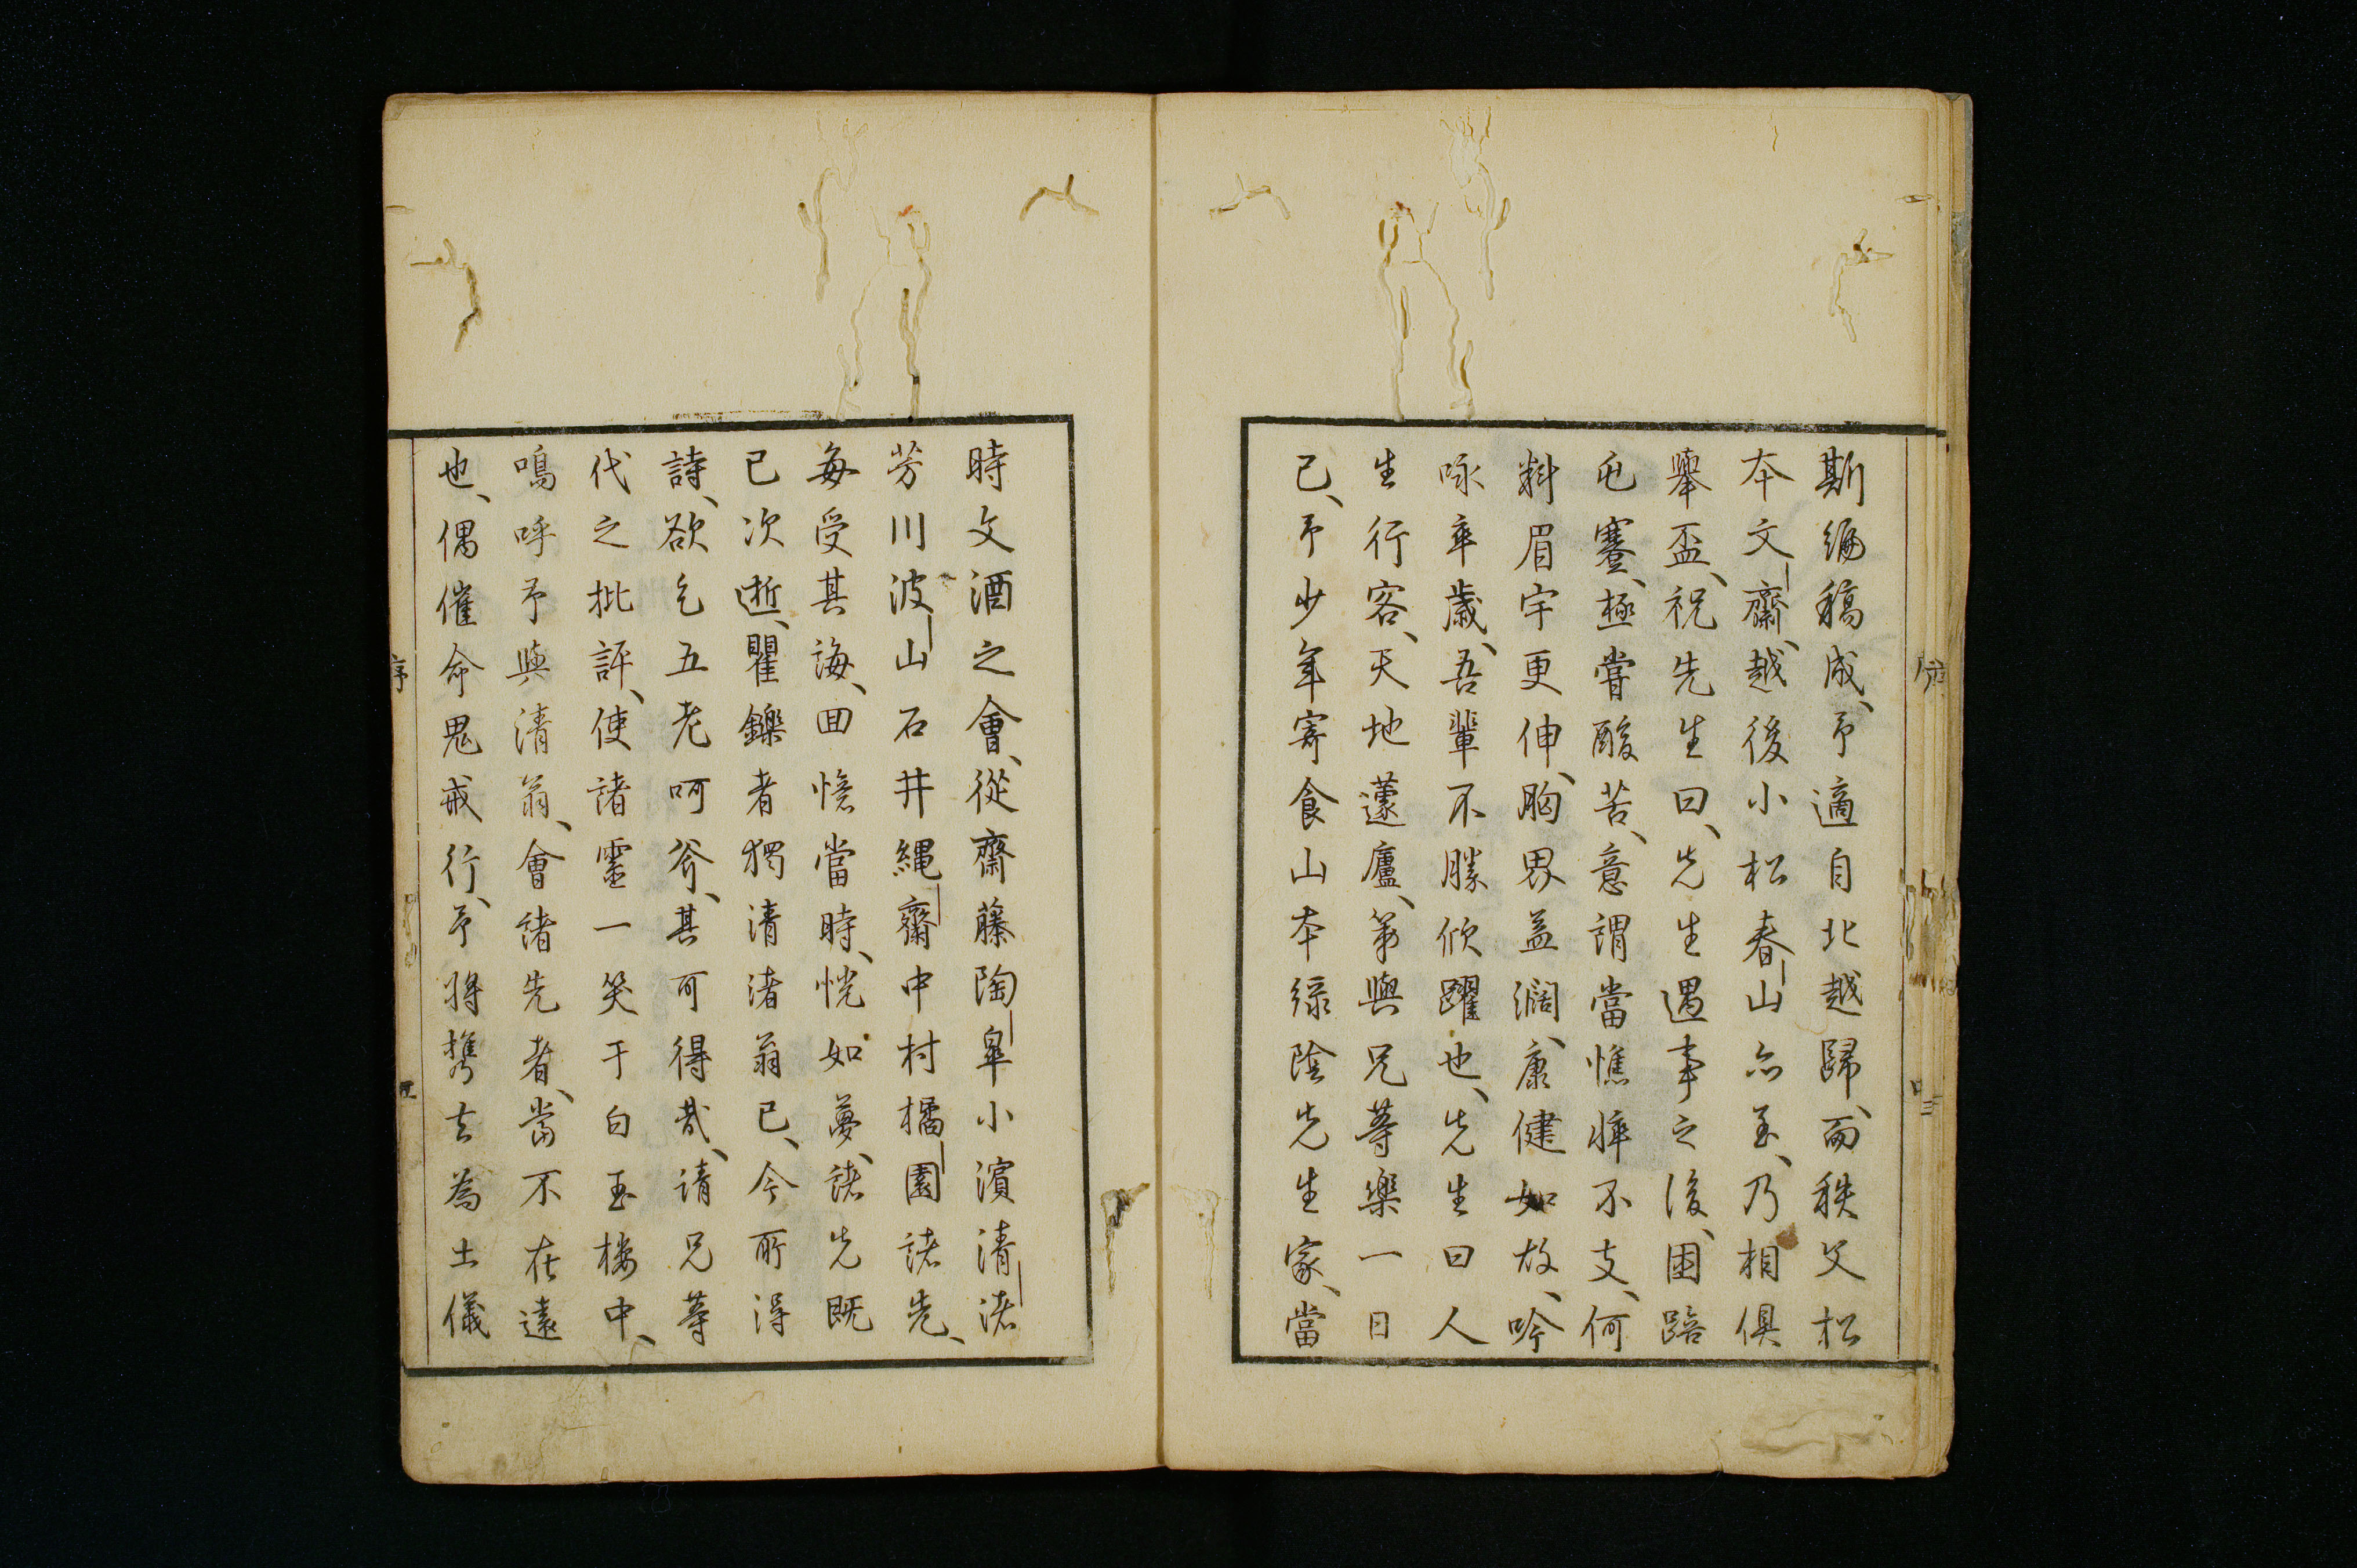 斯編稿成、予適自北越歸、而秩父松
本文齋、越後小松春山亦至、乃相俱
舉盃、祝先生曰、先生遇事之後、困踣
屯蹇、極嘗酸苦、意謂當憔悴不支、何
料眉宇更伸、胸界益濶、康健如故、吟
咏卒歲、吾輩不勝欣躍也、先生曰人
生行客、天地蘧廬、第與兄等樂一日
已、予少年寄食山本綠陰先生家、當
時文酒之會、從齋藤陶皐小濱清渚
芳川波山石井繩齋中村橘園諸先、
每受其誨、回憶當時、恍如夢、諸先既
已次逝、矍鑠者獨清渚翁已、今所得
詩、欲乞五老呵斧、其可得哉、請兄等
代之批評、使諸靈一笑于白玉樓中、
嗚呼予與清翁、會諸先者、當不在遠
也、偶催命鬼戒行、予將携去為土儀
序